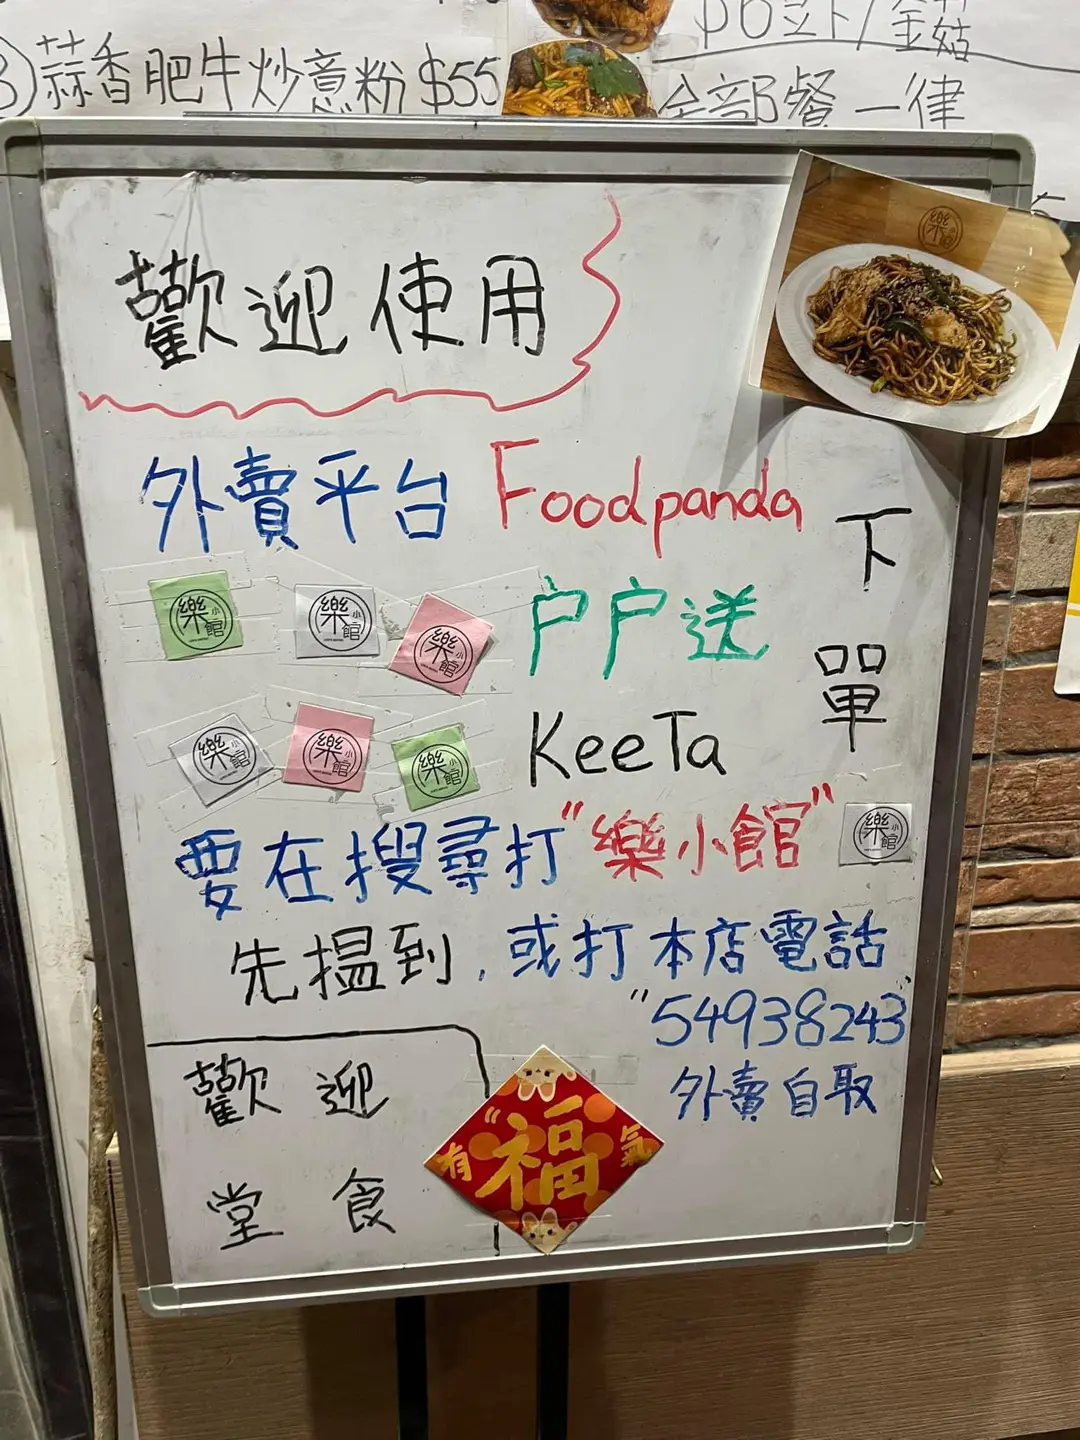 蒜香肥牛炒意粉 $55
金菇
全部餐一律
歡迎使用
外賣平台 Foodpanda
户户送
KeeTa
下單
要在搜尋打"樂小館"
先搵到，或打本店電話
"54938243"
外賣自取
歡迎
堂食
有福氣
樂小館
樂小館
樂小館
樂小館
樂小館
樂小館
樂小館
樂小館